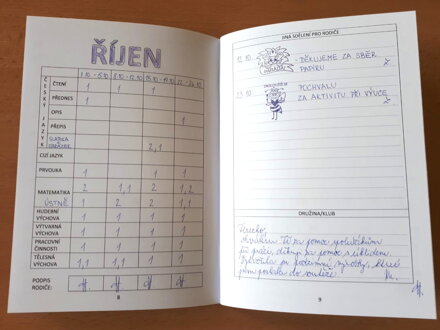 ŘÍJEN
1.10.-5.10. 8.10.-12.10. 15.10.-19.10. 22.-26.10.
ČESKÝ JAZYK
ČTENÍ 1 1
PŘEDNES 1
OPIS 1
PŘEPIS
SLABIKÁŘ 2,1
CIZÍ JAZYK
PRVOUKA 1 1 1 1
MATEMATIKA 2 1,1 2 1,2
ÚSTNĚ 2 2 1 1
HUDEBNÍ VÝCHOVA 1 1 1 1
VÝTVARNÁ VÝCHOVA 1 1 1 1
PRACOVNÍ ČINNOSTI 1 1 1 1
TĚLESNÁ VÝCHOVA 1,1 1,1 1 1,1
PODPIS
RODIČE:
8
JINÁ SDĚLENÍ PRO RODIČE
12.10. - DĚKUJEME ZA SBĚR
PAPÍRU
23.10. POCHVALU
ZA AKTIVITU PŘI VÝUCE
DRUŽINA/KLUB
Terezko,
chválím Tě za pomoc spolužákům
při práci, děkuji za pomoc s úklidem.
Vytvořila jsi podzimní výrobky, které
jsem poslala do soutěže
9